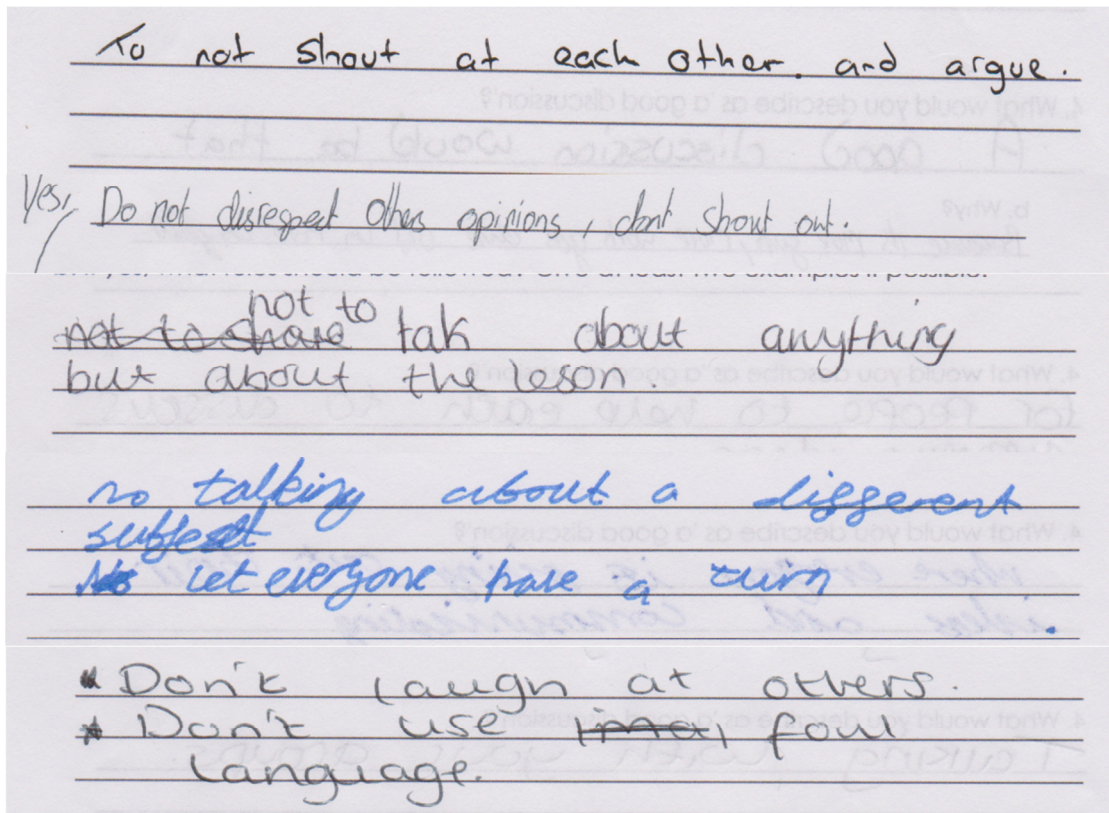 To not shout at each other. and argue.
Yes, Do not disrespect other opinions, dont shout out.
not to
not to share tak about anything
but about the leson.
no talking about a different
subject
let everyone have a turn
* Don't laugh at others.
* Don't use foul
language.